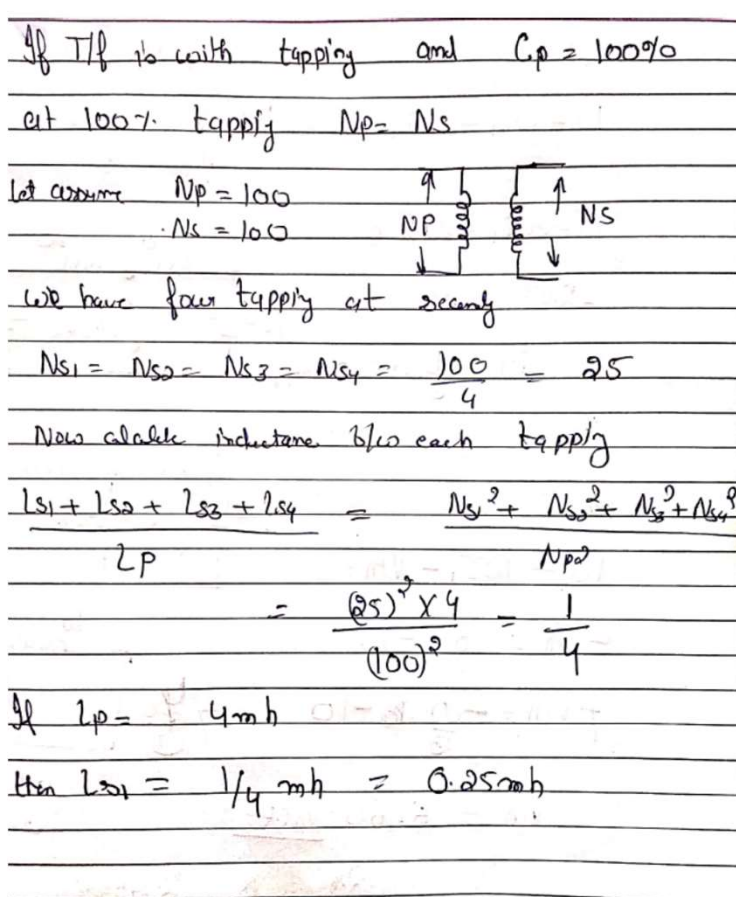 If T/f is with tapping and Cp = 100%
at 100% tappig Np = Ns
let assume Np = 100
Ns = 100
NP NS
we have four tappig at
Ns1 = Ns2 = Ns3 = Ns4 = 100/4 = 25
Now inductane b/w each tappig
Ls1 + Ls2 + Ls3 + Ls4 / LP = Ns1² + Ns2² + Ns3² + Ns4² / Np2
= (25)² X 4 / (100)² = 1/4
If Lp = 4mh
then Ls1 = 1/4 mh = 0.25mh